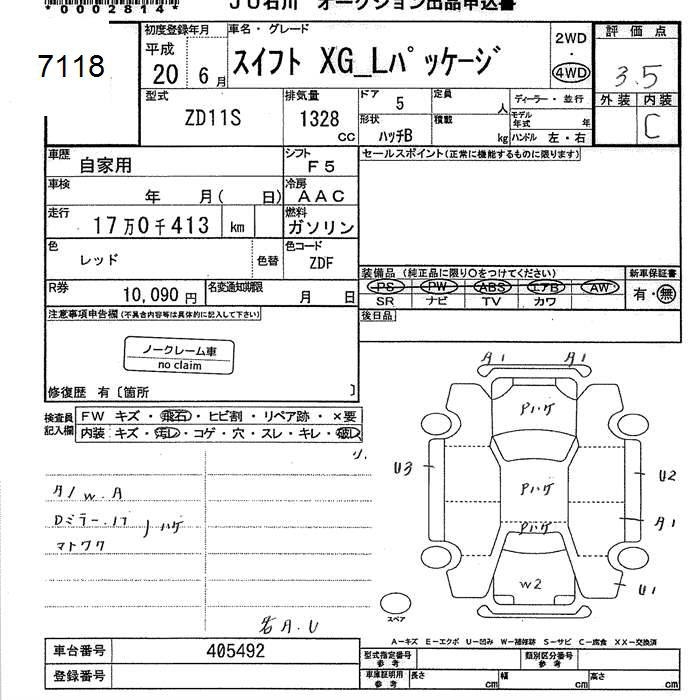 *0002814*
JU石川 オークション出品申込書
7118
初度登録年月 車名・グレード
平成 20 6月
スイフト XG_Lパッケージ
2WD
・
4WD
評価点
3.5
外装 内装
C
型式 排気量 ドア 定員
ZD11S 1328 CC 5 人
ディーラー・並行
形状 積載 モデル年式 年
ハッチB kg ハンドル 左・右
車歴 シフト セールスポイント(正常に機能するものに限ります)
自家用 F5
車検 冷房
年 月( 日) AAC
走行 燃料
17万0千413 km ガソリン
色 色コード
レッド 色替 ZDF
装備品 (純正品に限り○をつけてください) 新車保証書
R券 名変通知期限
10,090円 月 日
PS PW ABS エアB AW 有・無
SR ナビ TV カワ
注意事項申告欄(不具合内容等は具体的に記入して下さい) 後日品
ノークレーム車
no claim
修復歴 有〔箇所 〕
検査員 FW キズ・飛石・ヒビ割・リペア跡・×要
記入欄 内装:キズ・汚レ・コゲ・穴・スレ・キレ・破レ
A1 A1
Pハゲ
U3 Pハゲ U2
Pハゲ A1
W2 U1
スペア
Dミラー
ハゲ
A.U
A-キズ E-エクボ U-凹み W-補修跡 S-サビ C-腐食 XX-交換済
車台番号 405492
登録番号
型式指定番号 参考 類別区分番号 参考
車庫証明用 参考 長さ cm 幅 cm 高さ cm